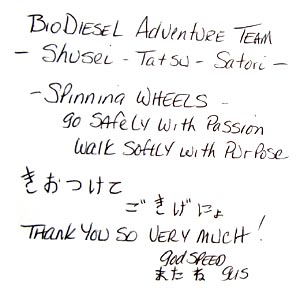 BioDiesel Adventure Team
- Shusei - Tatsu - Satori -
- Spinning Wheels -
go Safely with Passion
walk Softly with Purpose
きおつけて
ごきげによ
Thank You So Very Much!
god SPEED
またね gus